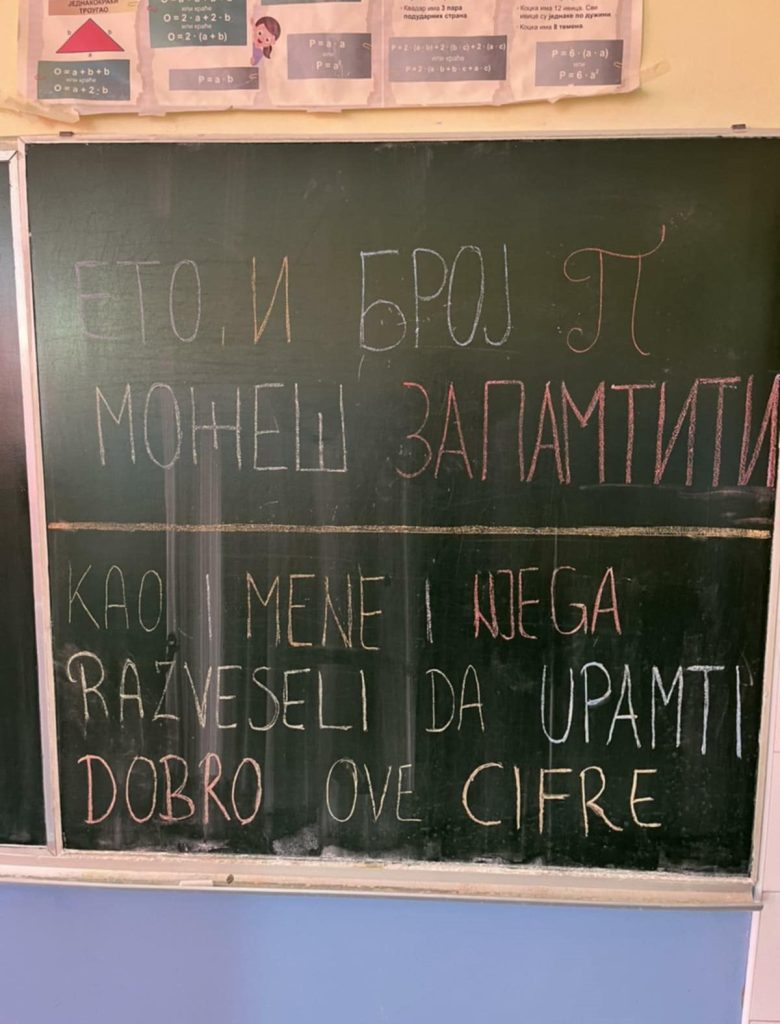 ЈЕДНАКОКРАКИ
ТРОУГАО
b b
a
O = a + b + b
или краће
O = a + 2 · b
O = 2 · a + 2 · b
или краће
O = 2 · (a + b)
P = a · b
P = a · a
или
P = a²
· Квадар има 3 пара
подударних страна
P = 2 · (a · b) + 2 · (b · c) + 2 · (a · c)
или краће
· Коцка има 12 ивица. Све
ивице су једнаке по дужини
· Коцка има 8 темена.
P = 6 · (a · a)
или
P = 6 · a²
ЕТО, И БРОЈ П
МОЖЕШ ЗАПАМТИТИ
KAO I MENE I NJEGA
RAZVESELI DA UPAMTI
DOBRO OVE CIFRE